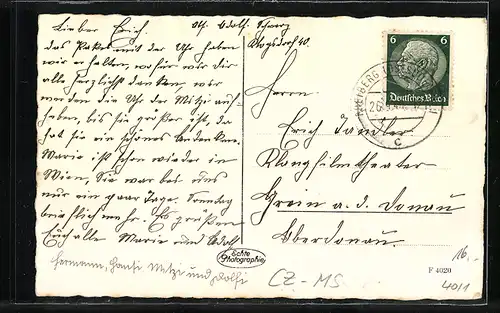 Lieber Erich.
das Paket mit der Uhr haben
wir erhalten, wofür wir dir
alle herzlichst danken, wir
werden die Uhr der Mitzi auf-
heben, bis sie größer ist, da
hat sie ein schönes Andenken.
Marie ist schon wieder in
Wien, Sie war bei uns
nur ein paar Tage. Sonntag
brieflich mehr. Es grüßen
Euch alle Marie und Adolf
Hermann, Hansi Mitzi und Adolfi
Abs. Adolf
40.
FREIBERG
26
c
6
Deutsches Reich
6
Herrn
Erich Jandler
Klangfilmtheater
Grein a. d. Donau
Oberdonau
Echte
Photographie
CZ-MS
16.-
F 4020
4011